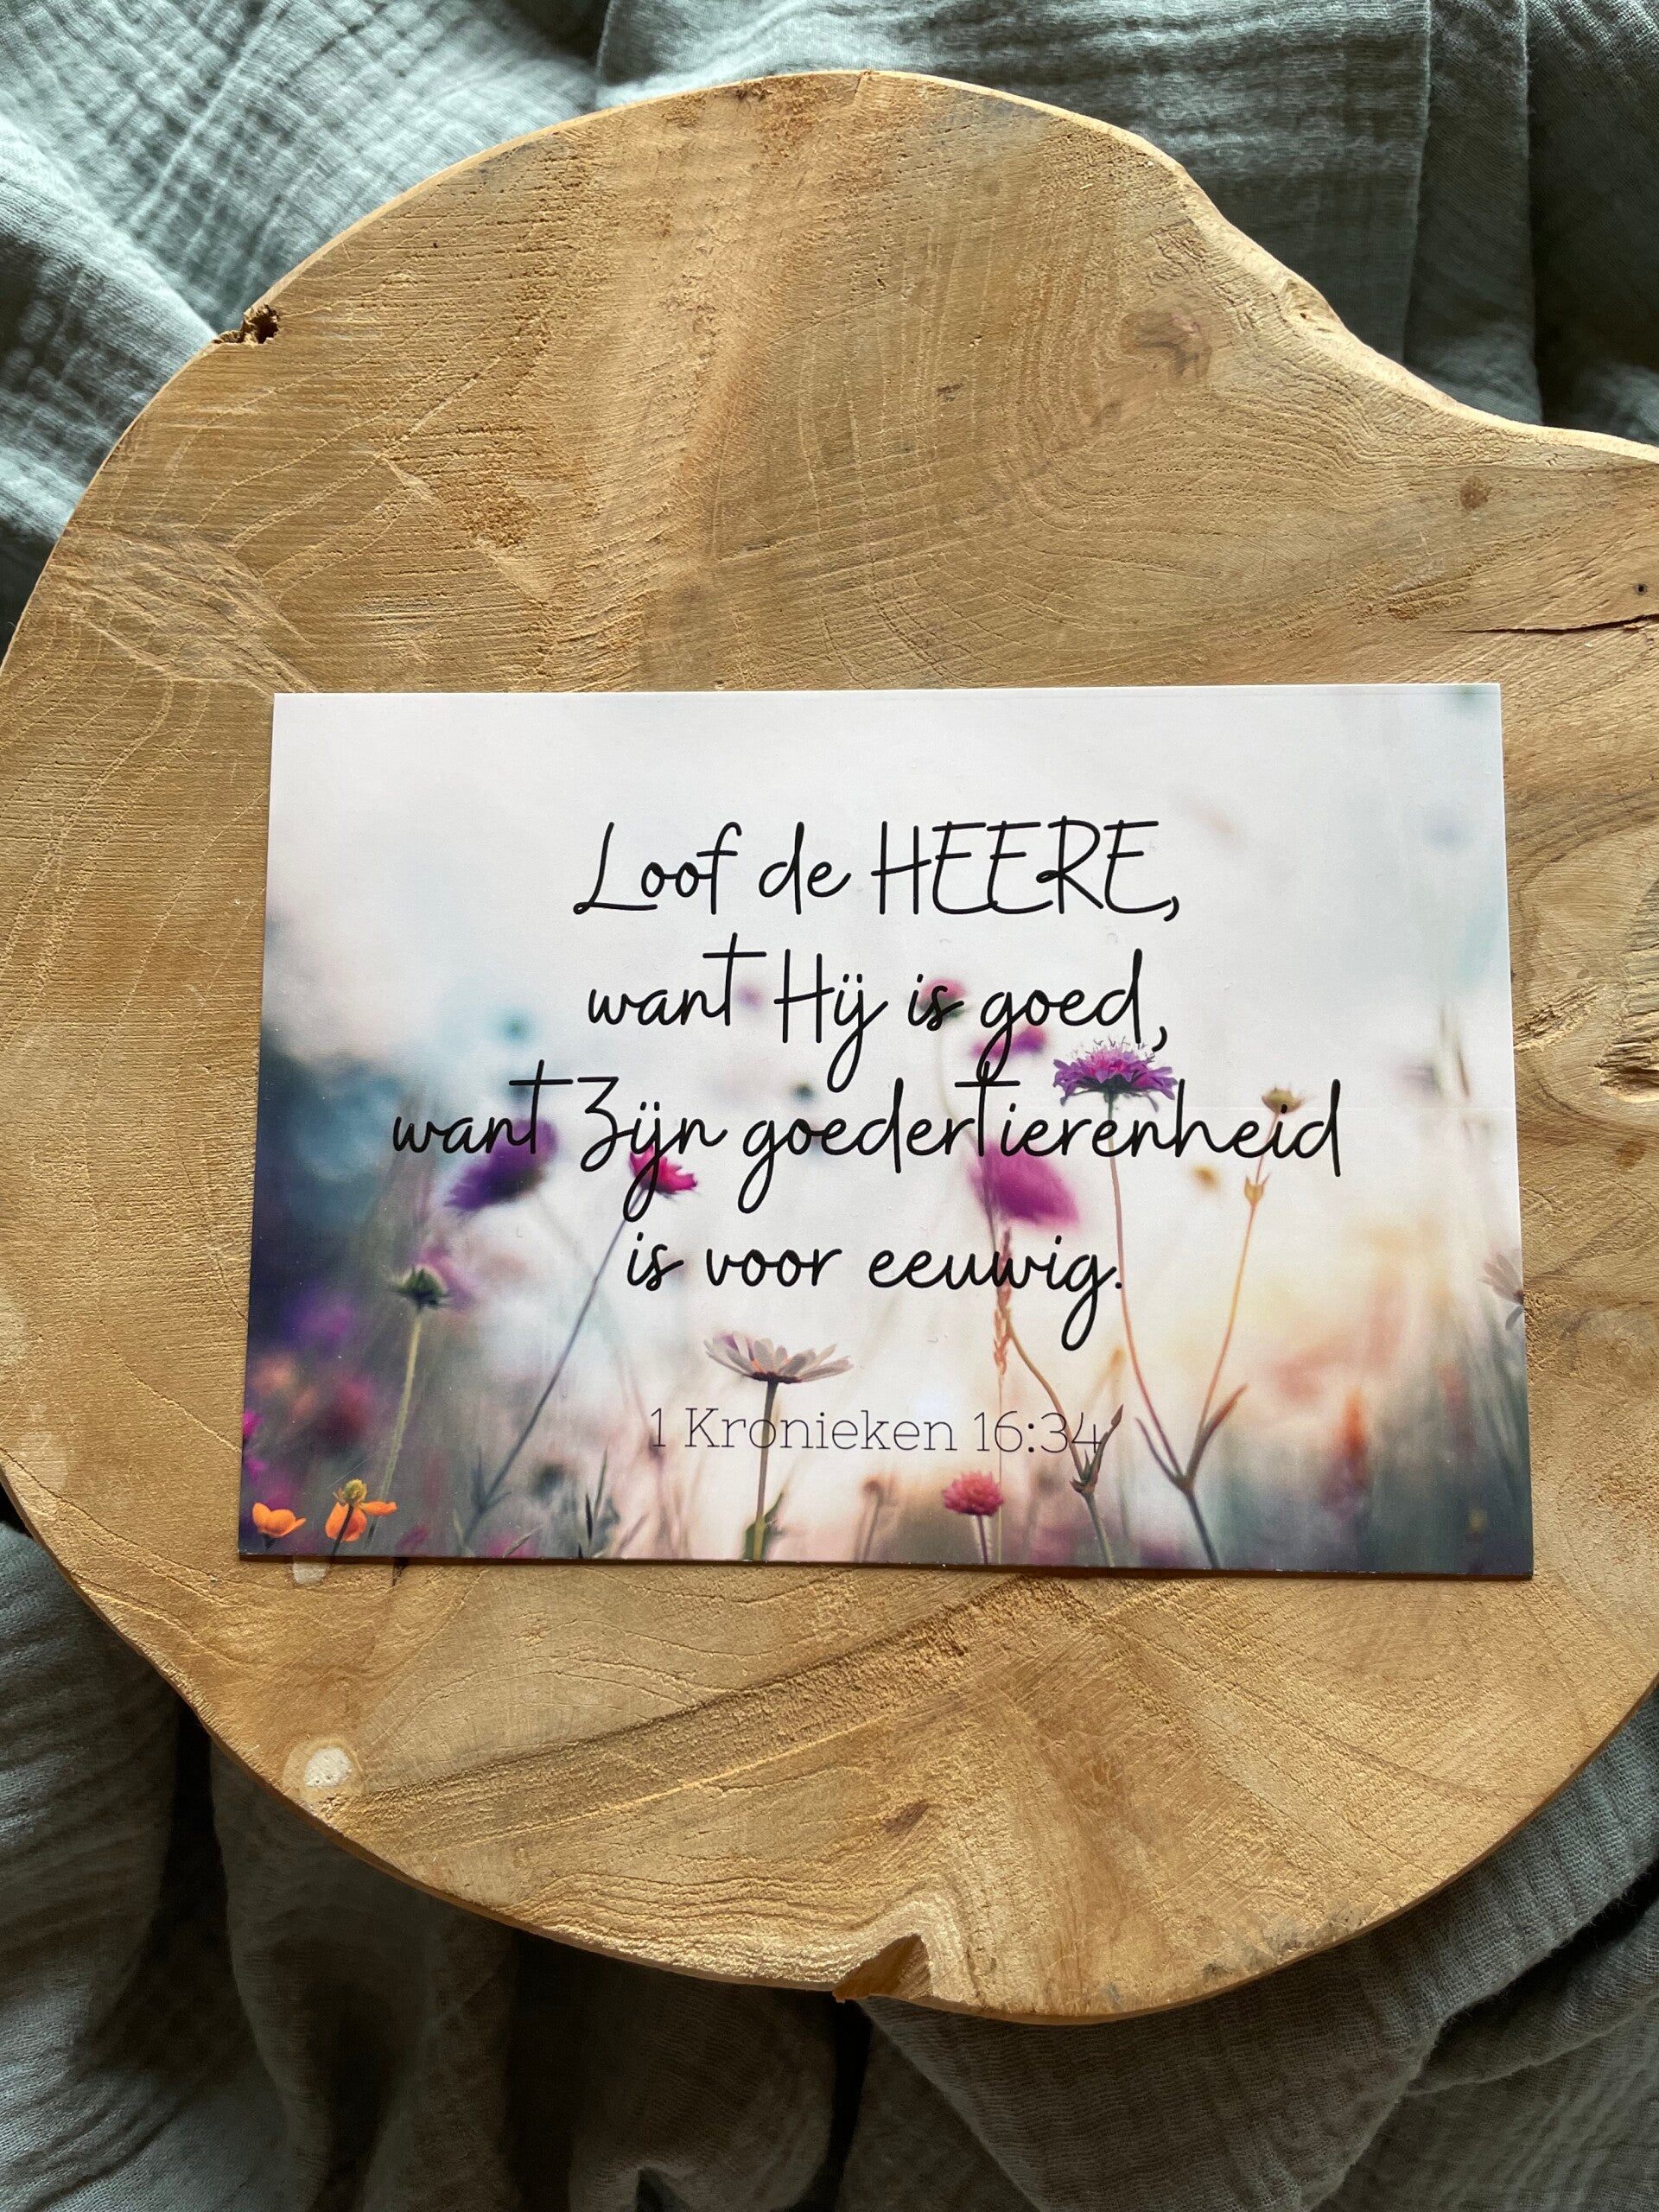 Loof de HEERE,
want Hij is goed,
want Zijn goedertierenheid
is voor eeuwig.
1 Kronieken 16:34